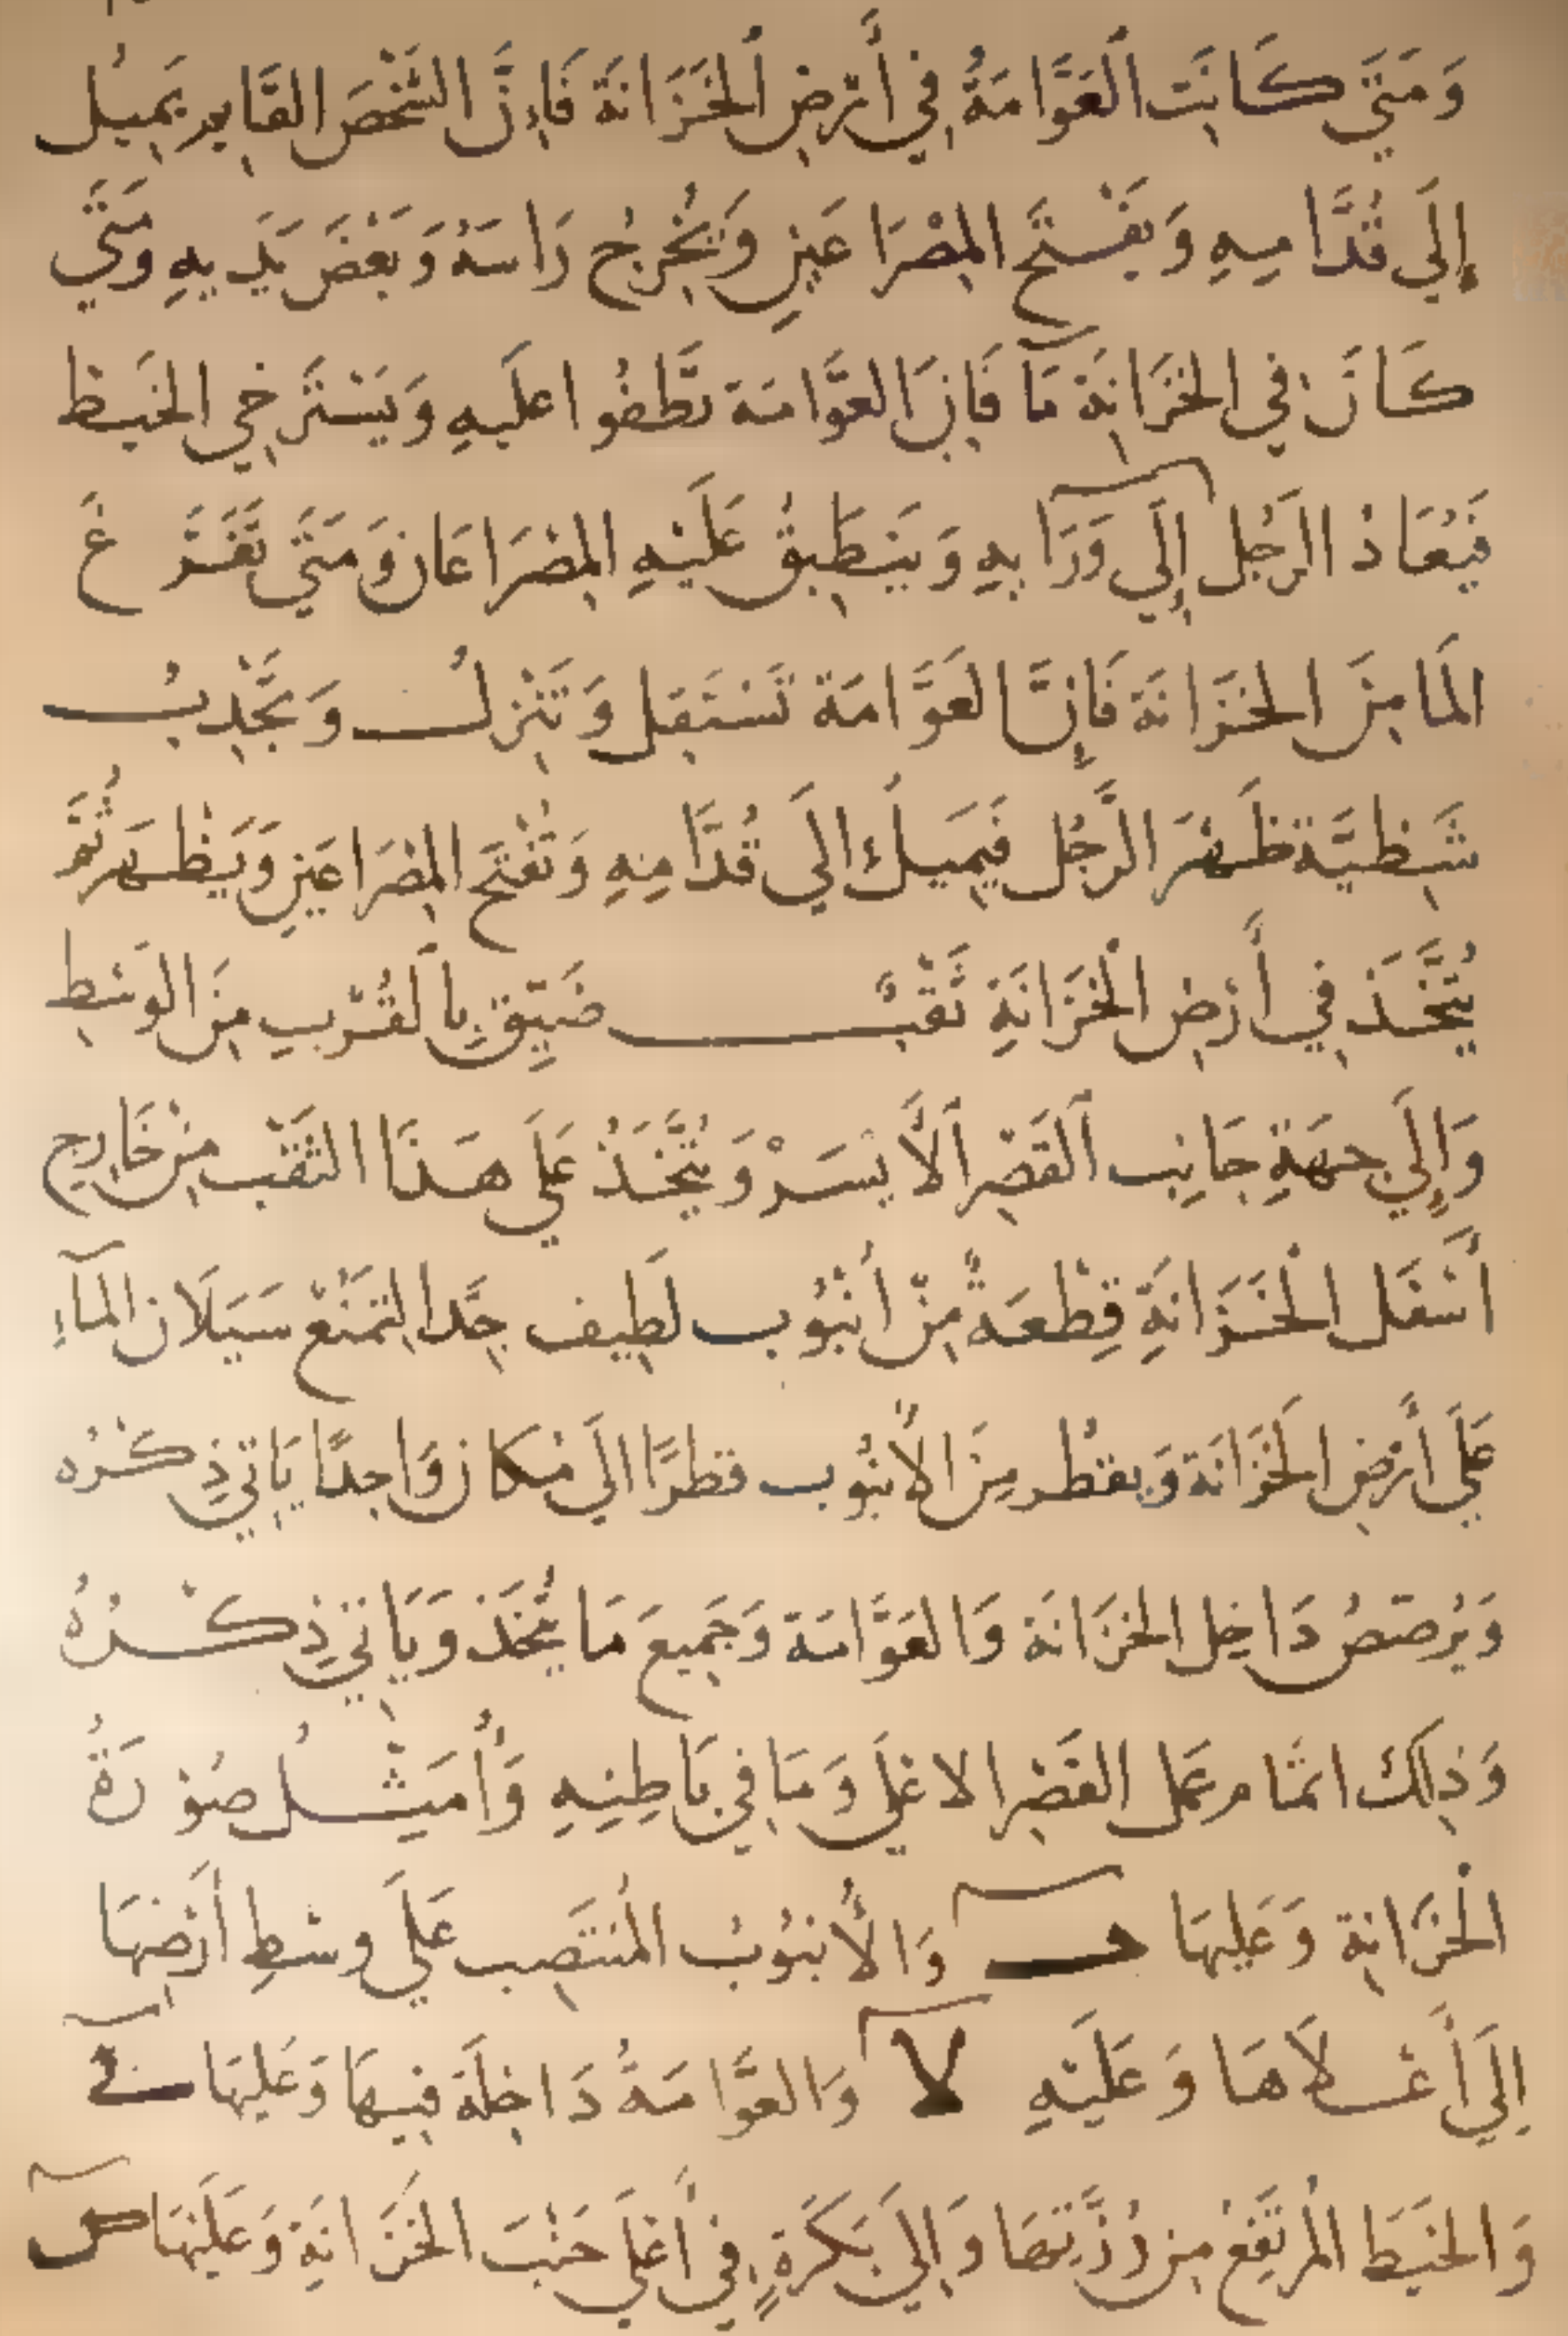 وَمَتَى كَانَت اَلْعَوَّامَةُ فِي أَرْضِ اَلْخَزَانَة فَإِنَّ الشَّخْصَ القَايِم يَمِيْل
إِلَى قُدَّامِهِ وَيَفْتَح المِصْرَاعَيْنِ وَيُخْرِجُ رَاسَهُ وَبَعْضَ يَدَيهِ وَمَتَى
كَانَ فِي الخَزَانَةِ مَآ فَاِنَ العَوَّامَة تَطفُوا عَلَيهِ وَيَسْتَرخِي الخَيط
فَيُعَاد الرَجُل إِلَي وَرَايِهِ وَيَنطَبِقُ عَلَيْهِ المِصْرَاعَان وَمَتَى تَفَرَّغَ
المَا مِنَ الخَزَانَة فَاِنَّ العَوَّامَة تَسْتَقِل وَتَنْزِلُ وَتَجْذِبُ
شَظِيَّة ظَهْرَ الرَّجُل فَيَمِيَلُ اِلَي قُدَّامِهِ وَتُفْتَح المِصْرَاعَيْنِ وَيَظْهَر ثُمَّ
يُتَّخَذ فِي أَرْضِ الْخَزَانَةِ ثَقْبٌ ضَيِّق بِالقُرْبِ مِنَ الوَسْطِ
وَإِلَي جِهَةِ جَانِب اَلقَصْرِ اَلأَيْسَرْ وَيُتَّخَذُ عَلَي هَذَا الثَقْب مِنْ خَارِج
أَسْفَل الْخَزَانَةِ قِطْعَةٌ مِنْ اُنْبُوب لَطِيف جِدًا لِتَمنَعْ سَيَلَان المَآءِ
عَلَي أَرْضِ الَخَزَانَة وَيقْطُر مِنَ الأُنبُوب قطرًا اِلَي مَكَان وَاحِدًا يَاتِي ذِكْرُه
وَيُرصّصُ دَاخِل الخَزَانَة وَالعَوَّامَة وَجَمِيعَ مَا يُتَّخَذ وَيَاتِي ذِكْرُهُ
وَذلِكَ اتمَام عَمَل القَصْرِ الاعْلَي وَمَا فِي بَاطِنِهِ وَأُمَثِّلُ صُوْرَةُ
الْخَزَانِة وَعَلِيهَا حــ وَالأُنبُوبُ المُنتَصِب عَلَي وسْطِ أَرْضِهَا
اِلَي أَعْلَاهَا وَعَلَيْهِ لا وَالعَوَّامَةُ دَاخِلَة فِيهَا وَعَلِيهَا
وَالخَيَط المُرتَفِعْ مِن رُزَّتِهَا وَاِلَي بَكَرَةٍ فِي أَعْلَي جَنْبَ الخَزَانَةِ وَعَلَيْهَا